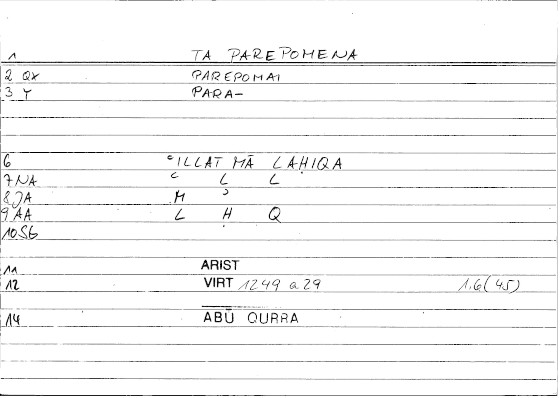 1 TA PAREPOMENA
2 QX PAREPOMAI
3 Y PARA-
6 ʿILLAT MĀ LAḤIQA
7 NA ʿ L L
8 JA M ʾ
9 AA L Ḥ Q
10 SG
11 ARIST
12 VIRT 1249 a 29 1.6(45)
14 ABŪ QURRA